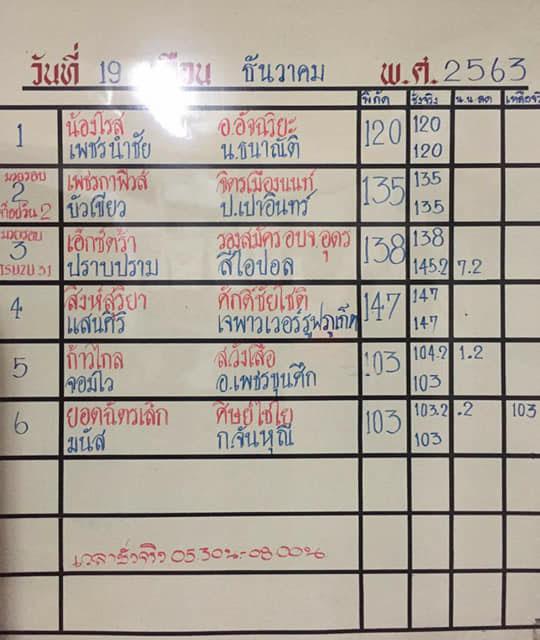 วันที่ 19 เดือน ธันวาคม พ.ศ. 2563
พิกัด ชั่งจริง น.น.ลด เหลือจริง
1 น้องโรส อ.อัจฉริยะ 120 120
เพชรนำชัย น.ธนาณัติ 120
มวยรอบ เพชรกาฬวส์ จิตรเมืองนนท์ 135 135
2 บัวเขียว ป.เปาอินทร์ 135
ท็อปวัน 2
มวยรอบ เอ็กซ์ตร้า รองสมัคร อบจ.อุดร 138 138
3 ปราบปราม สีโอปอล 145.2 7.2
4 สิงห์สุริยา ศักดิ์ชัยโชติ 147 147
แสนศิริ เจพาวเวอร์รูฟภูเก็ต 147
5 ก้าวไกล ส.วังเสือ 103 104.2 1.2
จอมไว อ.เพชรขุนศึก 103
6 ยอดฉัตรเล็ก ศิษย์ไชโย 103 103.2 .2 103
มนัส ก.จันหุณี 103
เวลาชั่งจริง 05.30น.-08.00น